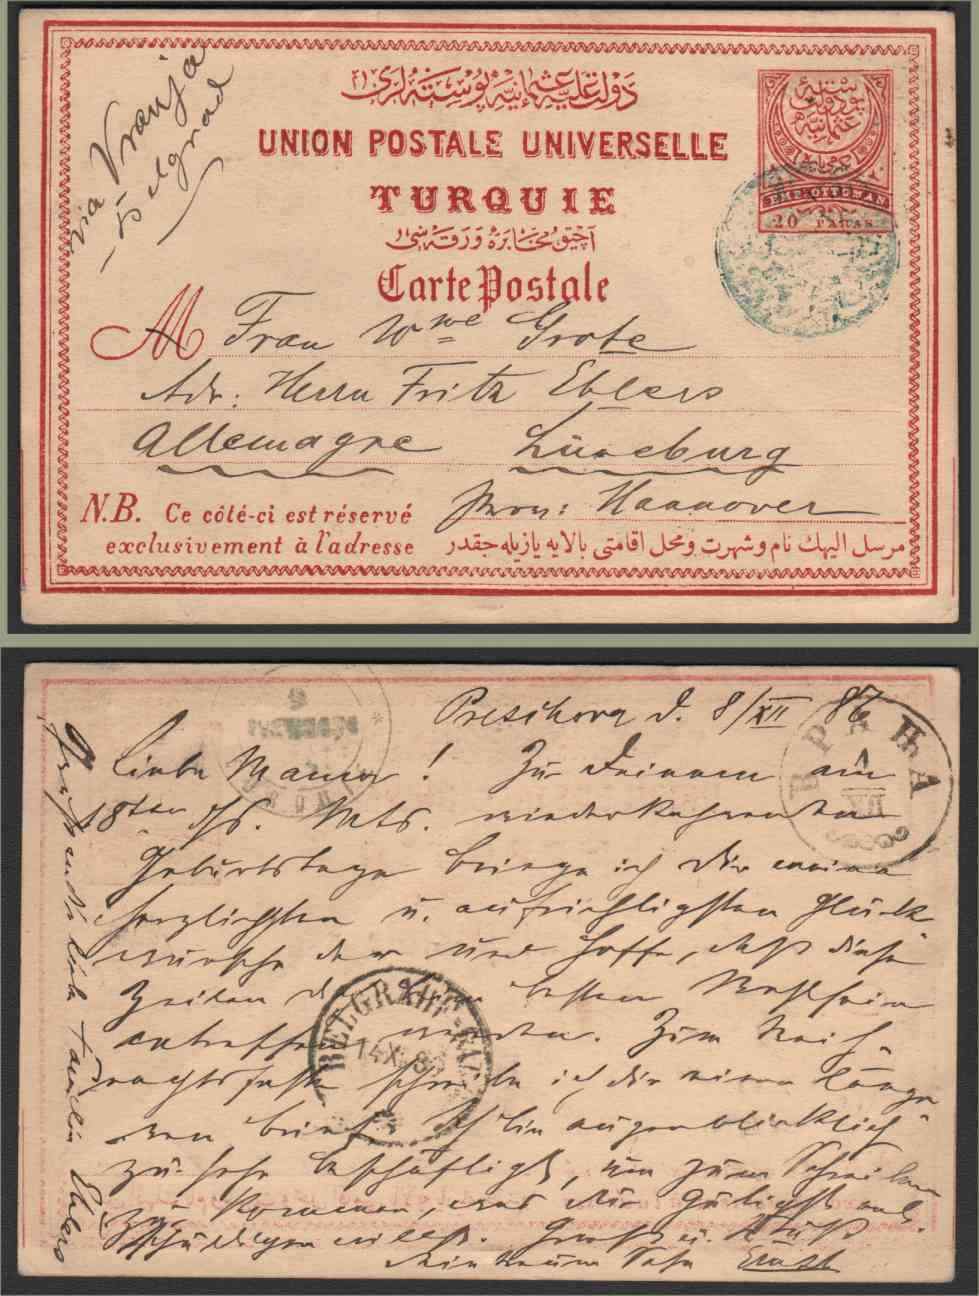 via Vranja
Belgrad
دولت علیه عثمانیه پوسته لری
UNION POSTALE UNIVERSELLE
TURQUIE
آچیق مخابره ورقه سی
Carte Postale
EMP. OTTOMAN
20 PARAS
M Frau Wwe Grote
Adr. Herrn Fritz Ehlers
Allemagne Lüneburg
Prov: Hannover
N.B. Ce côté-ci est réservé
exclusivement à l'adresse
مرسل الیهك نام و شهرت و محل اقامتی بالایه یازیله جقدر
Preschowa d. 8/XII 86
Liebe Mama! Zu Deinem am
18ten d/s. Mts. wiederkehrenden
Geburtstage bringe ich Dir meine
herzlichsten u. aufrichtigsten Glück-
wünsche dar und hoffe, daß diese
Zeilen Dich beim besten Wohlsein
antreffen werden. Zum Weih-
nachtsfeste schreibe ich Dir einen länge-
ren Brief. Ich bin augenblicklich
zu sehr beschäftigt, um zum Schreiben
zu kommen, was Du gütigst ent-
schuldigen willst. Gruß u. Kuß
Dein treuer Sohn Erich
Grüße an die liebe Familie Ehlers
ВРАНА
BELGRADE
14 XII 86